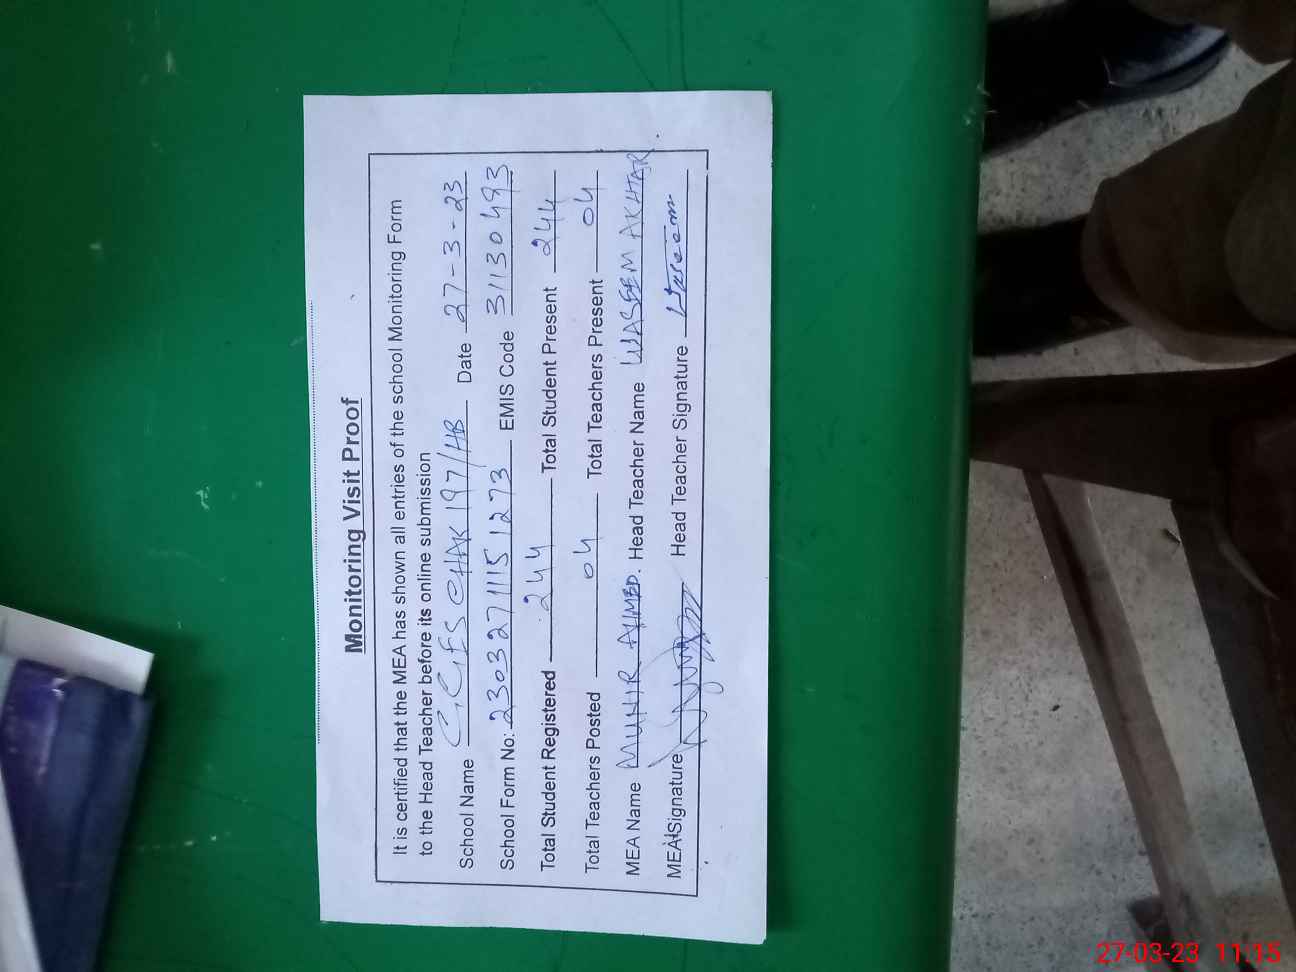 Monitoring Visit Proof
It is certified that the MEA has shown all entries of the school Monitoring Form
to the Head Teacher before its online submission
School Name GGES CHAK 197/HB Date 27-3-23
School Form No: 23032711151273 EMIS Code 31130493
Total Student Registered 244 Total Student Present 244
Total Teachers Posted 04 Total Teachers Present 04
MEA Name MUNIR AHMED. Head Teacher Name WASEEM AKHTAR.
MEA Signature Head Teacher Signature Waseem
27-03-23 11:15